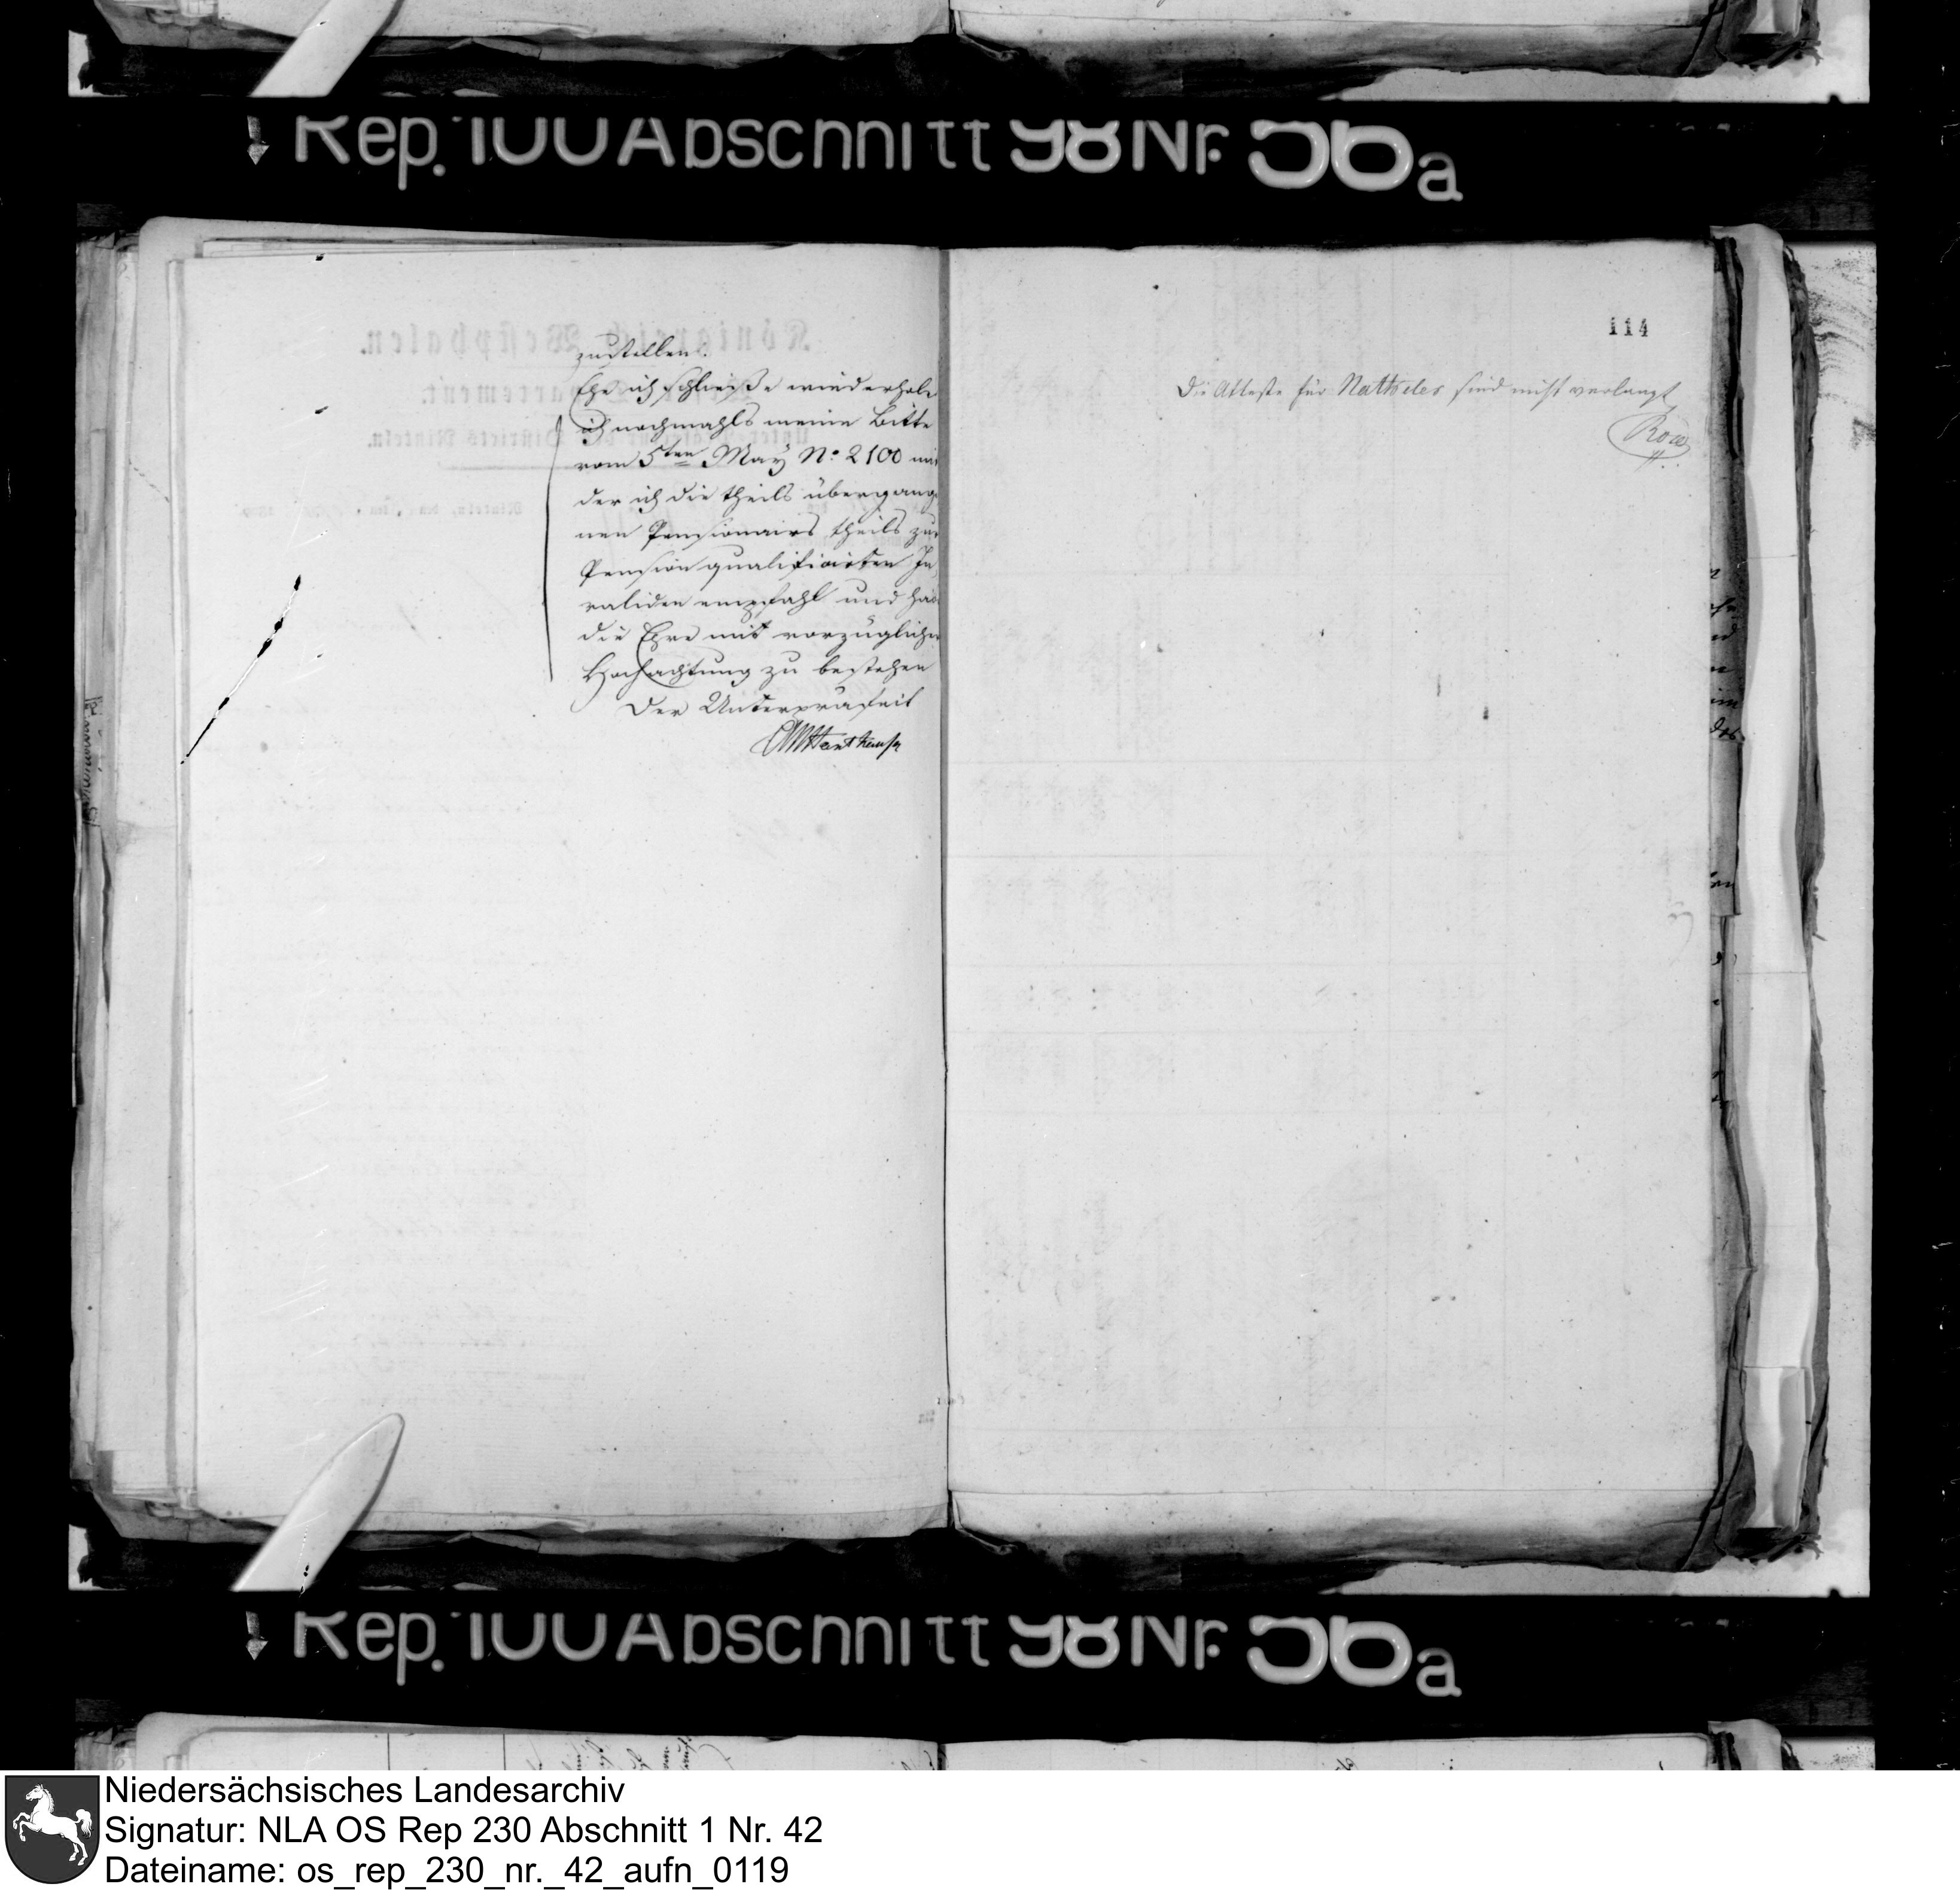 Rep. 100 Abschnitt 98 Nr. 56a
zustellen.
Ehe ich schließe wiederhole
ich nochmahls meine Bitte
vom 5ten May No 2100 mit
der ich die theils übergange
nen Pensionairs theils zur
Pension qualificirten In
validen empfahl und habe
die Ehre mit vorzüglicher
Hochachtung zu bestehen
Der Unterpräfect
114
Die Atteste für sind nicht verlangt
Rep. 100 Abschnitt 98 Nr. 56a
Niedersächsisches Landesarchiv
Signatur: NLA OS Rep 230 Abschnitt 1 Nr. 42
Dateiname: os_rep_230_nr._42_aufn_0119